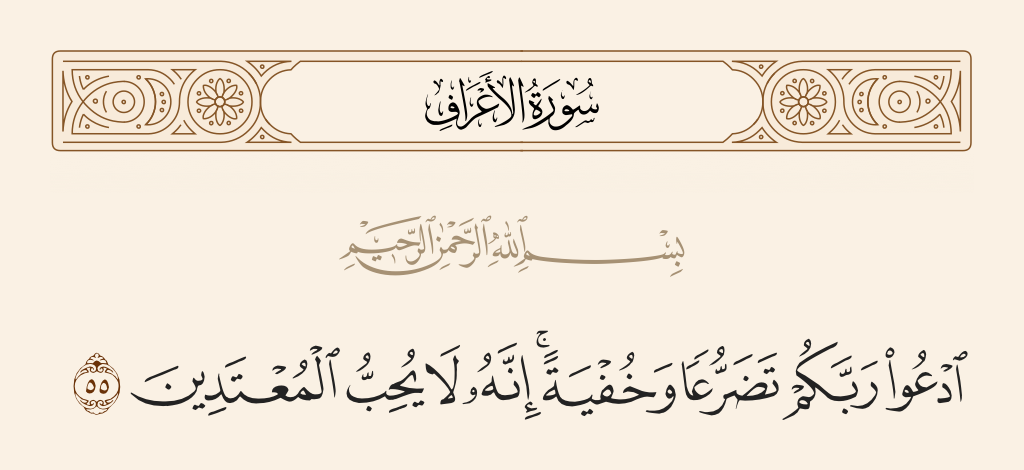 سُورَةُ الأَعْرَافِ
بِسْمِ ٱللَّهِ ٱلرَّحْمَٰنِ ٱلرَّحِيمِ
ٱدْعُوا۟ رَبَّكُمْ تَضَرُّعًا وَخُفْيَةً ۚ إِنَّهُۥ لَا يُحِبُّ ٱلْمُعْتَدِينَ ٥٥